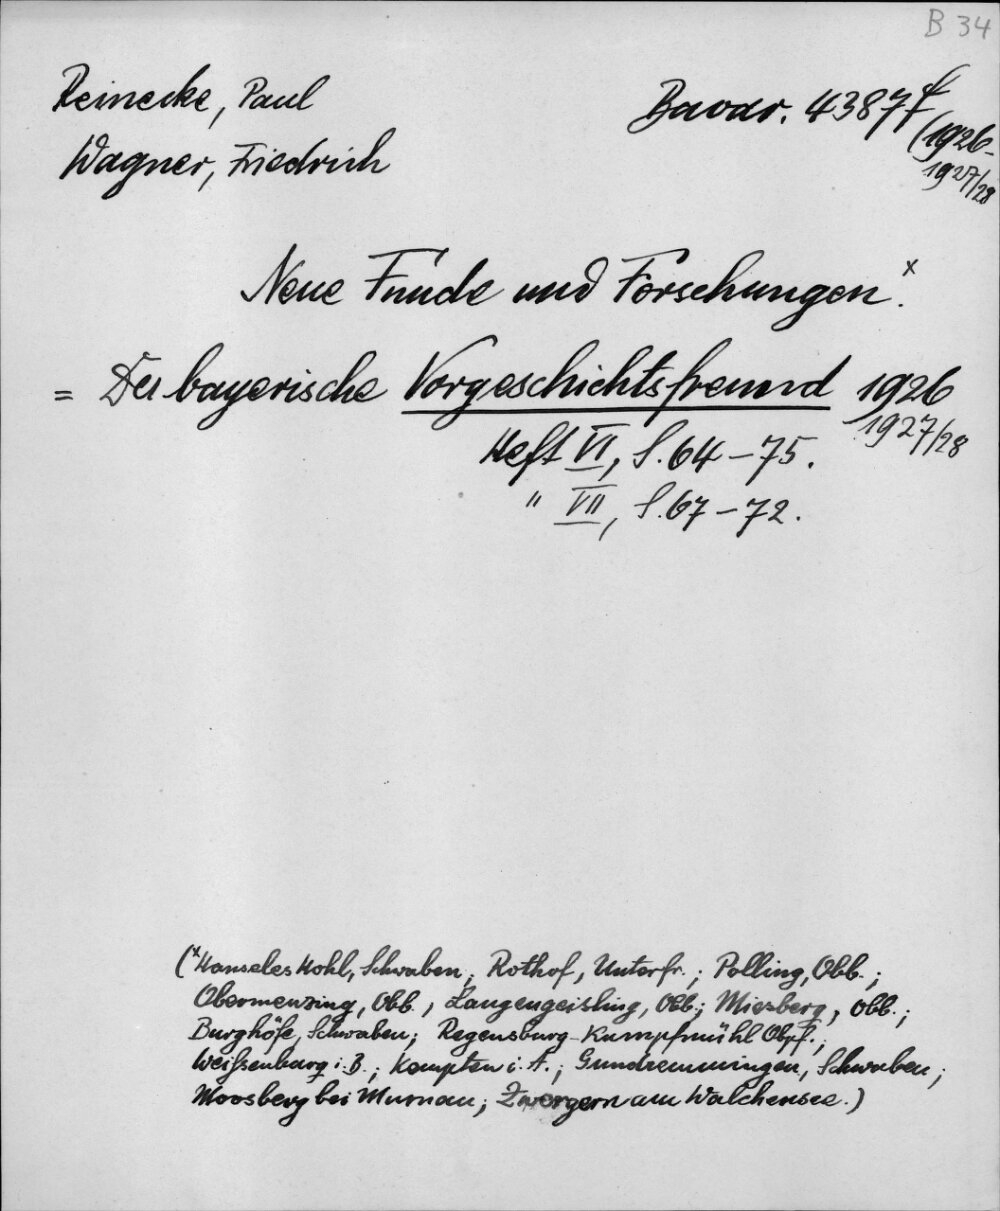 B 34
Reinecke, Paul
Bavar. 4387 f
(1926-
1927/28
Wagner, Friedrich
Neue Funde und Forschungen x.
= Der bayerische Vorgeschichtsfreund 1926
1927/28
Heft VI, S. 64-75.
" VII, S. 67-72.
(x Hanseles Hohl, Schwaben; Rothof, Unterfr.; Polling, Obb.;
Obermenzing, Obb., Langengeisling, Obb.; Miesberg, Obb.;
Burghöfe, Schwaben; Regensburg-Kumpfmühl Obpf.;
Weißenburg i. B.; Kempten i. A.; Gundremmingen, Schwaben;
Moosberg bei Murnau; Zwergern am Walchensee.)